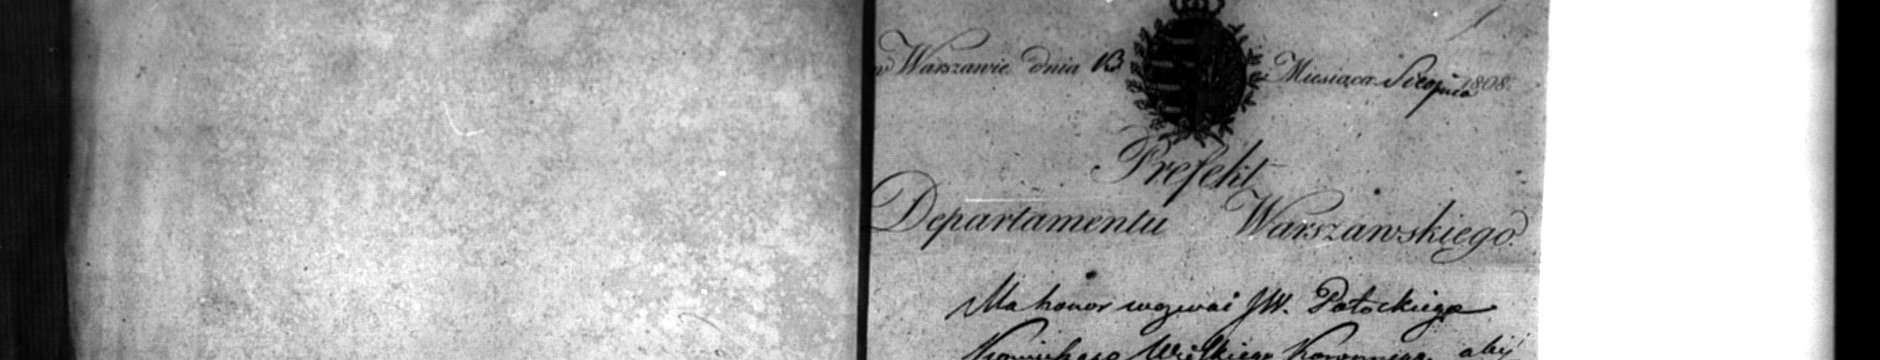 w Warszawie dnia 13 Miesiąca Sierpnia 1808.
Prefekt
Departamentu Warszawskiego.
Ma honor wezwać JW. Potockiego
Wielkiego Koronnego, aby